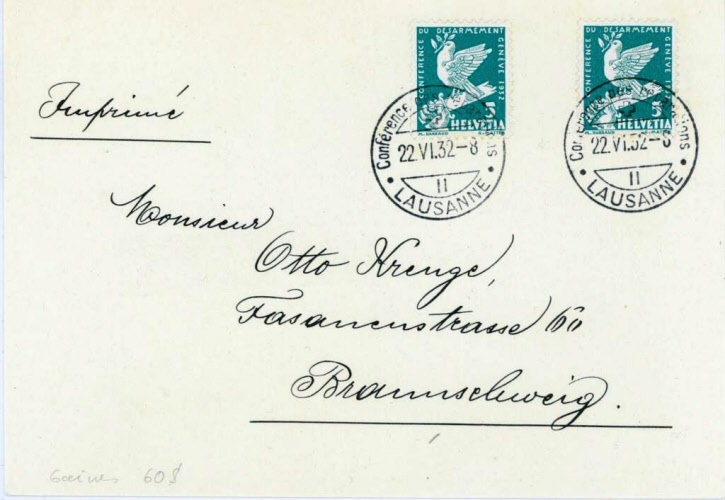 CONFÉRENCE DU DÉSARMEMENT GENÈVE 1932
5
HELVETIA
CONFÉRENCE DU DÉSARMEMENT GENÈVE 1932
5
HELVETIA
Conférence des Réparations
22.VI.32-8
II
LAUSANNE
Conférence des Réparations
22.VI.32-8
II
LAUSANNE
Imprimé
Monsieur
Otto Krenge,
Fasanenstrasse 60
Braunschweig.
60$